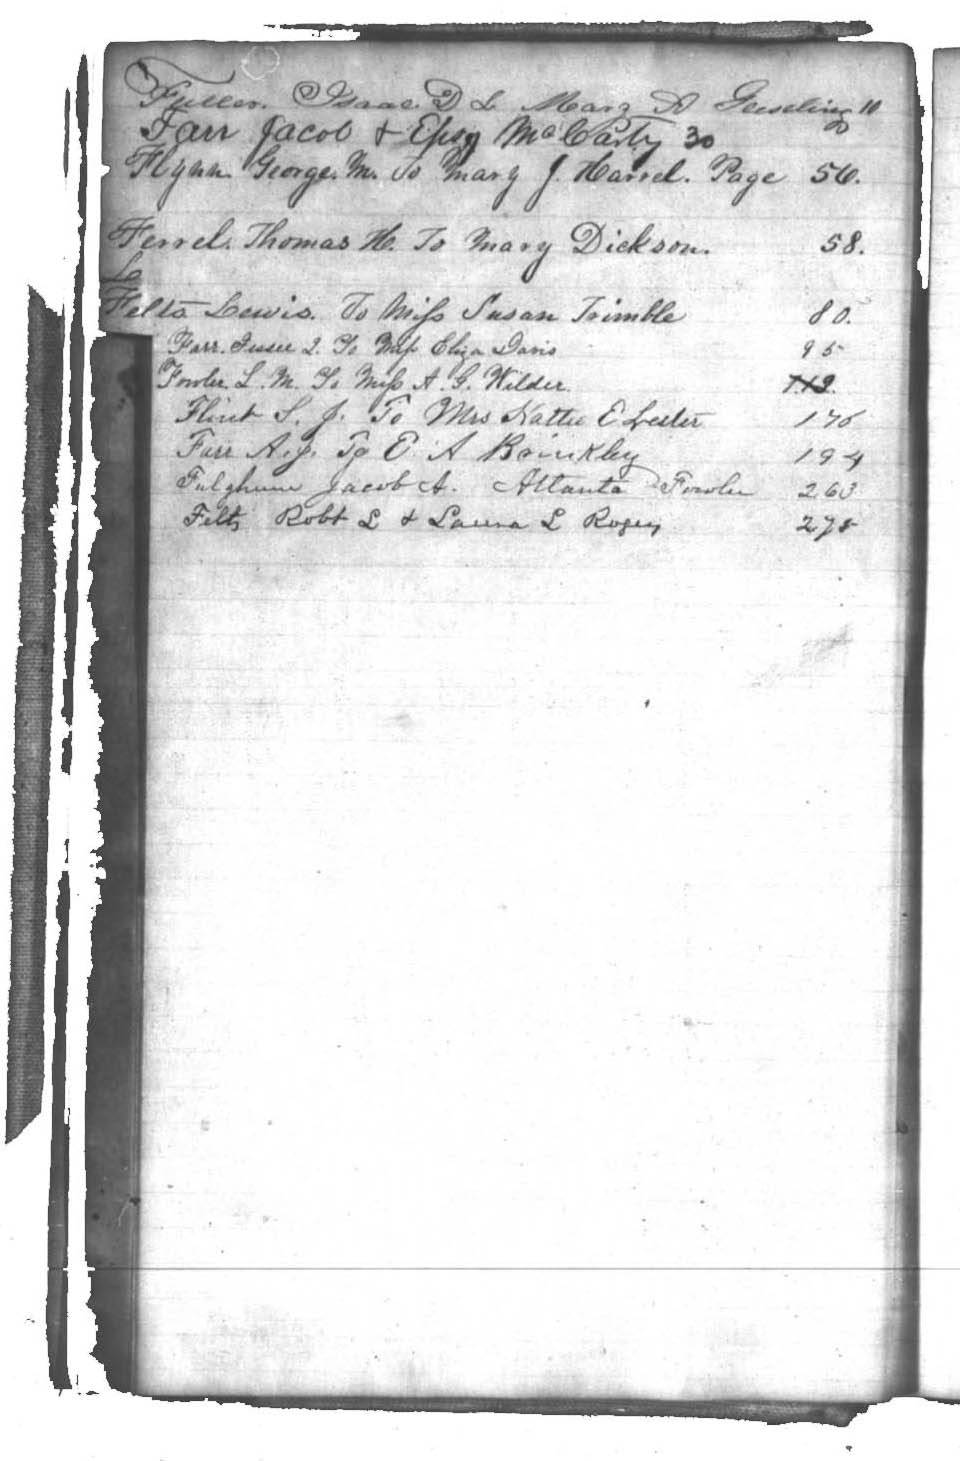 Fuller. Isaac. D L Mary A 10
Farr Jacob & Epsy McCarty 30
Flynn. George. M. To Mary J. Harrel. Page 56.
Ferrel. Thomas H. To Mary Dickson. 58.
Felts Lewis. To Miss Susan Trimble 80.
Farr. Jesse To Miss Eliza Davis 95
Fowler L. M. To Miss A. G. Wilder.
Flint S. J. To Mrs Hattie E Lester 176
Farr A. J. To E. A Brinkley 194
Fulghum Jacob A. Atlanta Fowler 263
Felts Robt L & Laura L 278